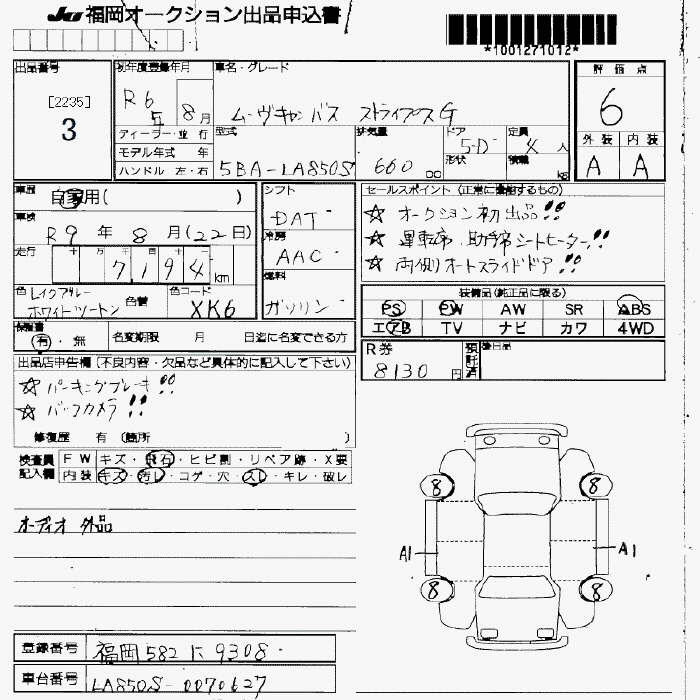 JU 福岡オークション出品申込書
*1001271012*
出品番号 初年度登録年月 車名・グレード 評価点
[2235] R6 8月 ムーヴキャンバス ストライプスG 6
3
ディーラー・並行 型式 排気量 ドア 5-D 定員 4人 外装 内装
モデル年式 年 形状 積載 kg
ハンドル 左・右 5BA-LA850S 660 cc A A
車歴 自家用( ) シフト セールスポイント(正常に機能するもの)
DAT ☆ オークション初出品!!
車検 R9年8月(22日) 冷房 ☆ 運転席・助手席シートヒーター!!
走行 十 万 千 百 十 AAC ☆ 両側オートスライドドア!!
7194km 燃料
色 レイクブルー 色替 色コード ガソリン 装備品(純正品に限る)
ホワイトツートン XK6 PS PW AW SR ABS
保証書 エアB TV ナビ カワ 4WD
有・無 名変期限 月 日迄に名変できる方 R券 預託済 後日品
8130円
出品店申告欄(不良内容・欠品など具体的に記入して下さい)
☆ パーキングブレーキ!!
☆ バックカメラ!!
修復歴 有(箇所 )
検査員 FW キズ・飛石・ヒビ割・リペア跡・X要
記入欄 内装 キズ・汚レ・コゲ・穴・スレ・キレ・破レ
オーディオ 外品
8 8
A1 A1
8 8
登録番号 福岡 582 に 9308
車台番号 LA850S-0070627